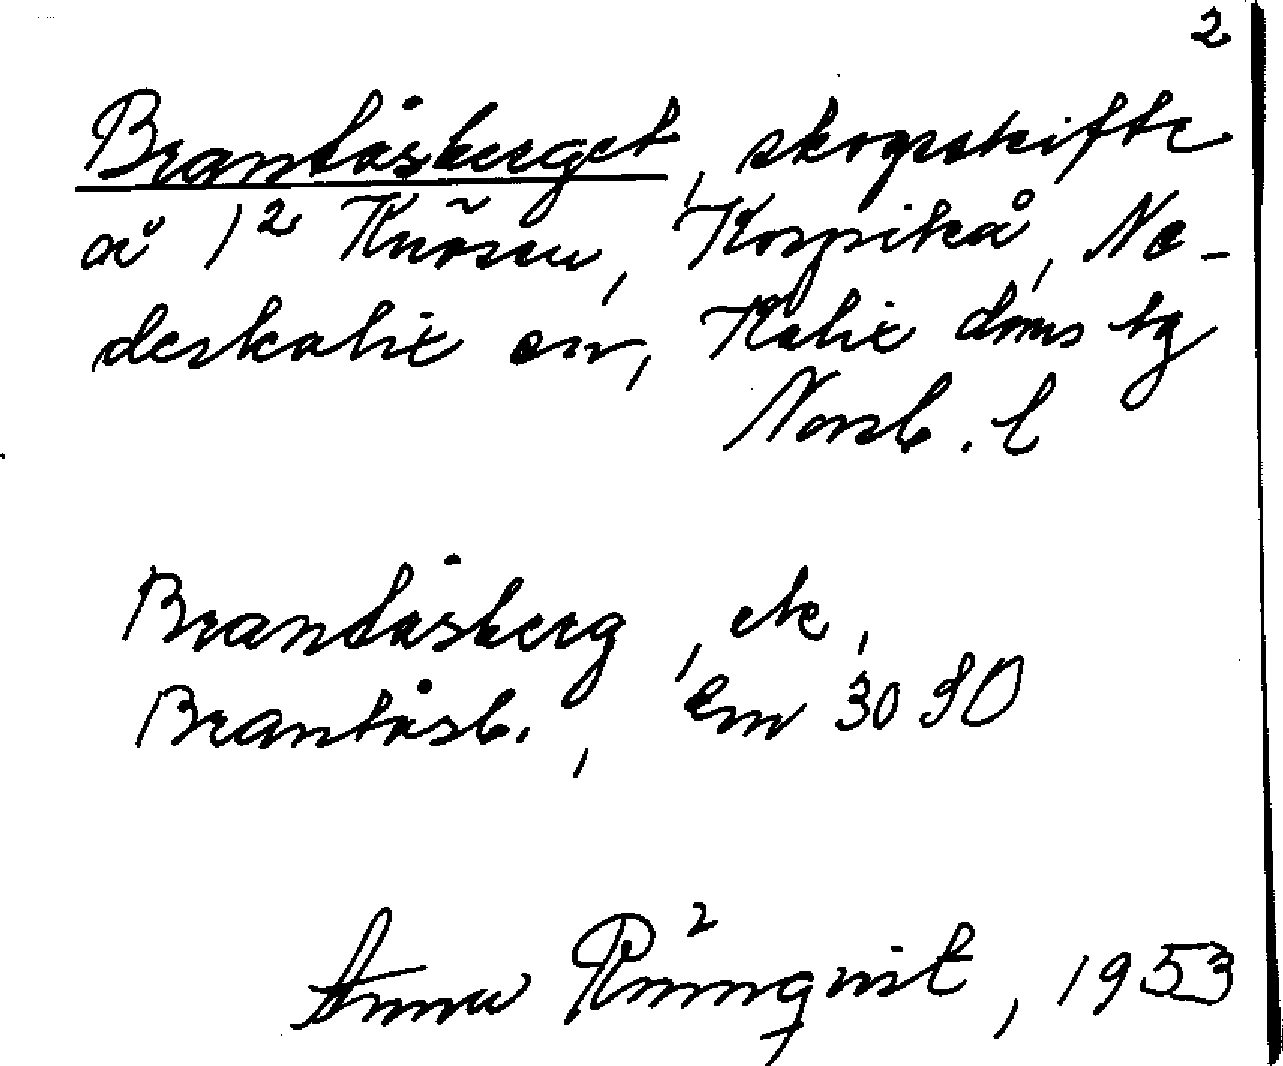 2
Brantåsberget, skogsskifte
å 1² Knösen, Korpikå, Ne-
derkalix sn, Kalix doms tg
Norrb. l
Brantåsberg, ek,
Brantåsb., Em 30 90
Anna Rönnqvist, 1953